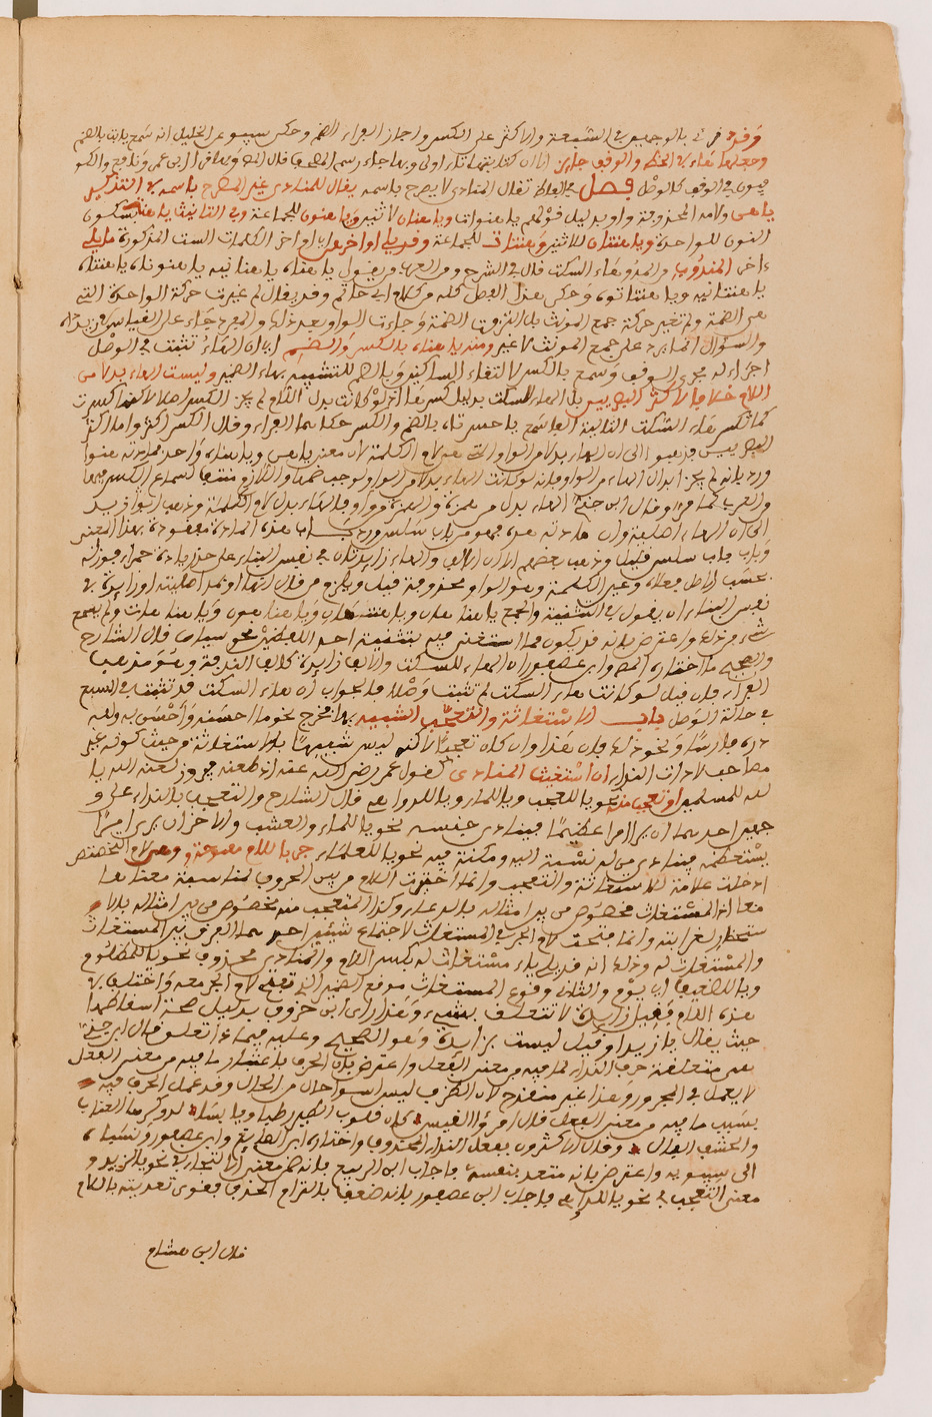 وقد قرئ بالوجهين في السبعة والاكثر على الكسر واجاز الفراء الضم وحكى سيبويه عن الخليل انه سمع يا ابت بالضم
وجعلها هاء في الخط والوقف جائز
في الوقف كالوصل فصل في الفاظ تقال لمنادى لا يصرح باسمه يقال للمنادى غير المصرح باسمه في التذكير
يا هن ولامه المحذوفة واو بدليل قولهم يا هنوات ويا هنان لاثنين ويا هنون للجماعة وفي التانيث يا هنة بسكون
النون للواحدة ويا هنتان للاثنين وهنات للجماعة وقد يلي اواخرهن اي اواخر الكلمات الست المذكورة ما يلي
ءاخر المندوب والمد وهاء السكت قال في الشرح ومن العرب من يقول يا هناه يا هنانيه يا هنوناه يا هنتاه
يا هنتانيه ويا هناتوه وحكى هذا الفصل كله من كلام ابي حاتم وقد يقال لم غيرت حركة الواحدة التي
هي الضمة ولم تغير حركة جمع المونث بل التزمت الضمة وجاءت الواو بعد ذلك
والسؤال انما يرد على جمع المونث لا غير ومنه يا هناه بالكسر والضم اي ان الهاء تثبت في الوصل
اجراء له مجرى الوقف وسمع بالكسر لالتقاء الساكنين وبالضم للتشبيه بهاء الضمير وليست الهاء بدلا من
اللام خلافا لاكثر البصريين بل الهاء للسكت بدليل كسرها اذ لو كانت بدل اللام لم يجز الكسر
كما تكسر هاء السكت الثابتة الفا سمع يا حسرتاه بالضم والكسر حكاهما الفراء وقال الكسر اكثر واما اكثر
البصريين فذهبوا الى ان الهاء بدل من الواو التي هي لام الكلمة لان معنى يا هن ويا هناه واحد
ورد بانه لم يجز ابدال الهاء من الواو وبانه لو كانت الهاء بدلا من الواو لوجب ضمها واللازم منتف لسماع الكسر فيها
من العرب كما مر وقال ابن جني الهاء بدل من همزة والهمزة بدل من واو
الى ان الهاء اصلية وان مادته هنه فهو من باب سلس ورد بان هذه المادة مفقودة بهذا المعنى
وبان باب سلس قليل وذهب بعضهم الى ان الالف والهاء زايدتان في نفس البناء على حد زيادة حمراء فوزنه
بحسب الاصل فعلاه وعين الكلمة وهو الواو محذوفة قيل ويلزم من قال انها اصلية او زايدة في
نفس البناء ان يقول في التثنية والجمع يا هناهان ويا هنتاهان ويا هناهون ويا هناهات ولم يسمع
شيء من ذلك واعترض بانه قد يكون مما استغني فيه بتثنية احد اللفظين نحو سيان قال الشارح
والصحيح ما اختاره المص وابن عصفور ان الهاء للسكت والالف زايدة كالف الندبة وهو مذهب
الفراء فان قيل لو كانت هاء السكت لم تثبت وصلا فالجواب ان هاء السكت قد تثبت في السبع
في حالة الوصل باب الاستغاثة والتعجب الشبيه بها مخرج نحو ما احسنه واحسن به ولله
دره فارسا ونحو ذلك فان هذا وان كان تعجبا لاكنه ليس شبيها بالاستغاثة من حيث كونه غير
مصاحب لادات النداء ان استغيث المنادى كقول عمر رضي الله عنه اذ طعنه فيروز لعنه الله يا
لله للمسلمين او تعجب منه نحو يا للعجب ويا للماء ويا للدواهي قال الشارح والتعجب بالنداء على و
جهين احدهما ان يرى امرا عظيما فينادي جنسه نحو يا للماء والعشب والاخر ان يرى امرا
يستعظمه فينادي من له نسبة اليه ومكنة فيه نحو يا للعلماء جر باللام مفتوحة وهي لام التخصيص
ادخلت علامة للاستغاثة والتعجب وانما اختيرت اللام من بين الحروف لمناسبة معناها
معناها اذ المستغاث مخصوص من بين امثاله بالدعاء وكذا المتعجب منه مخصوص من بين امثاله بالا
ستحضار لغرابته وانما فتحت لام الجر في المستغاث لاجتماع شيئين احدهما الفرق بين المستغاث
والمستغاث له وذلك انه قد يلي ياء مستغاث له بكسر اللام والمنادى محذوف نحو يا للمظلوم
ويا للضعيف اي يا قوم والثاني وقوع المستغاث موقع الضمير الذي تفتح لام الجر معه واختلف في
هذه اللام فقيل زايدة لا تتعلق بشيء وهذا راي ابن خروف بدليل صحة اسقاطها
حيث يقال يا زيد او قيل ليست بزايدة وهو الصحيح وعليه فبماذا تتعلق قال ابن جني
هي متعلقة بحرف النداء لما فيه من معنى الفعل واعترض بان الحرف باعتبار ما فيه من معنى الفعل
لا يعمل في المجرور وهذا غير منقدح لان الظرف ليس اسوا حالا من الحال وقد عمل الحرف فيه
بسبب ما فيه من معنى الفعل قال امرؤ القيس كان قلوب الطير رطبا ويابسا لدى وكرها العناب
والحشف البالي وقال الاكثرون بفعل النداء المحذوف واختاره ابن الضايع وابن عصفور ونسباه
الى سيبويه واعترض بانه متعد بنفسه فاجاب ابن ابي الربيع بانه ضمن معنى الالتجاء في نحو يا لزيد و
معنى التعجب في نحو يا للدواهي فاجاب ابن عصفور بانه ضعف بالتزام الحذف فقوي تعديته باللام
قال ابن هشام